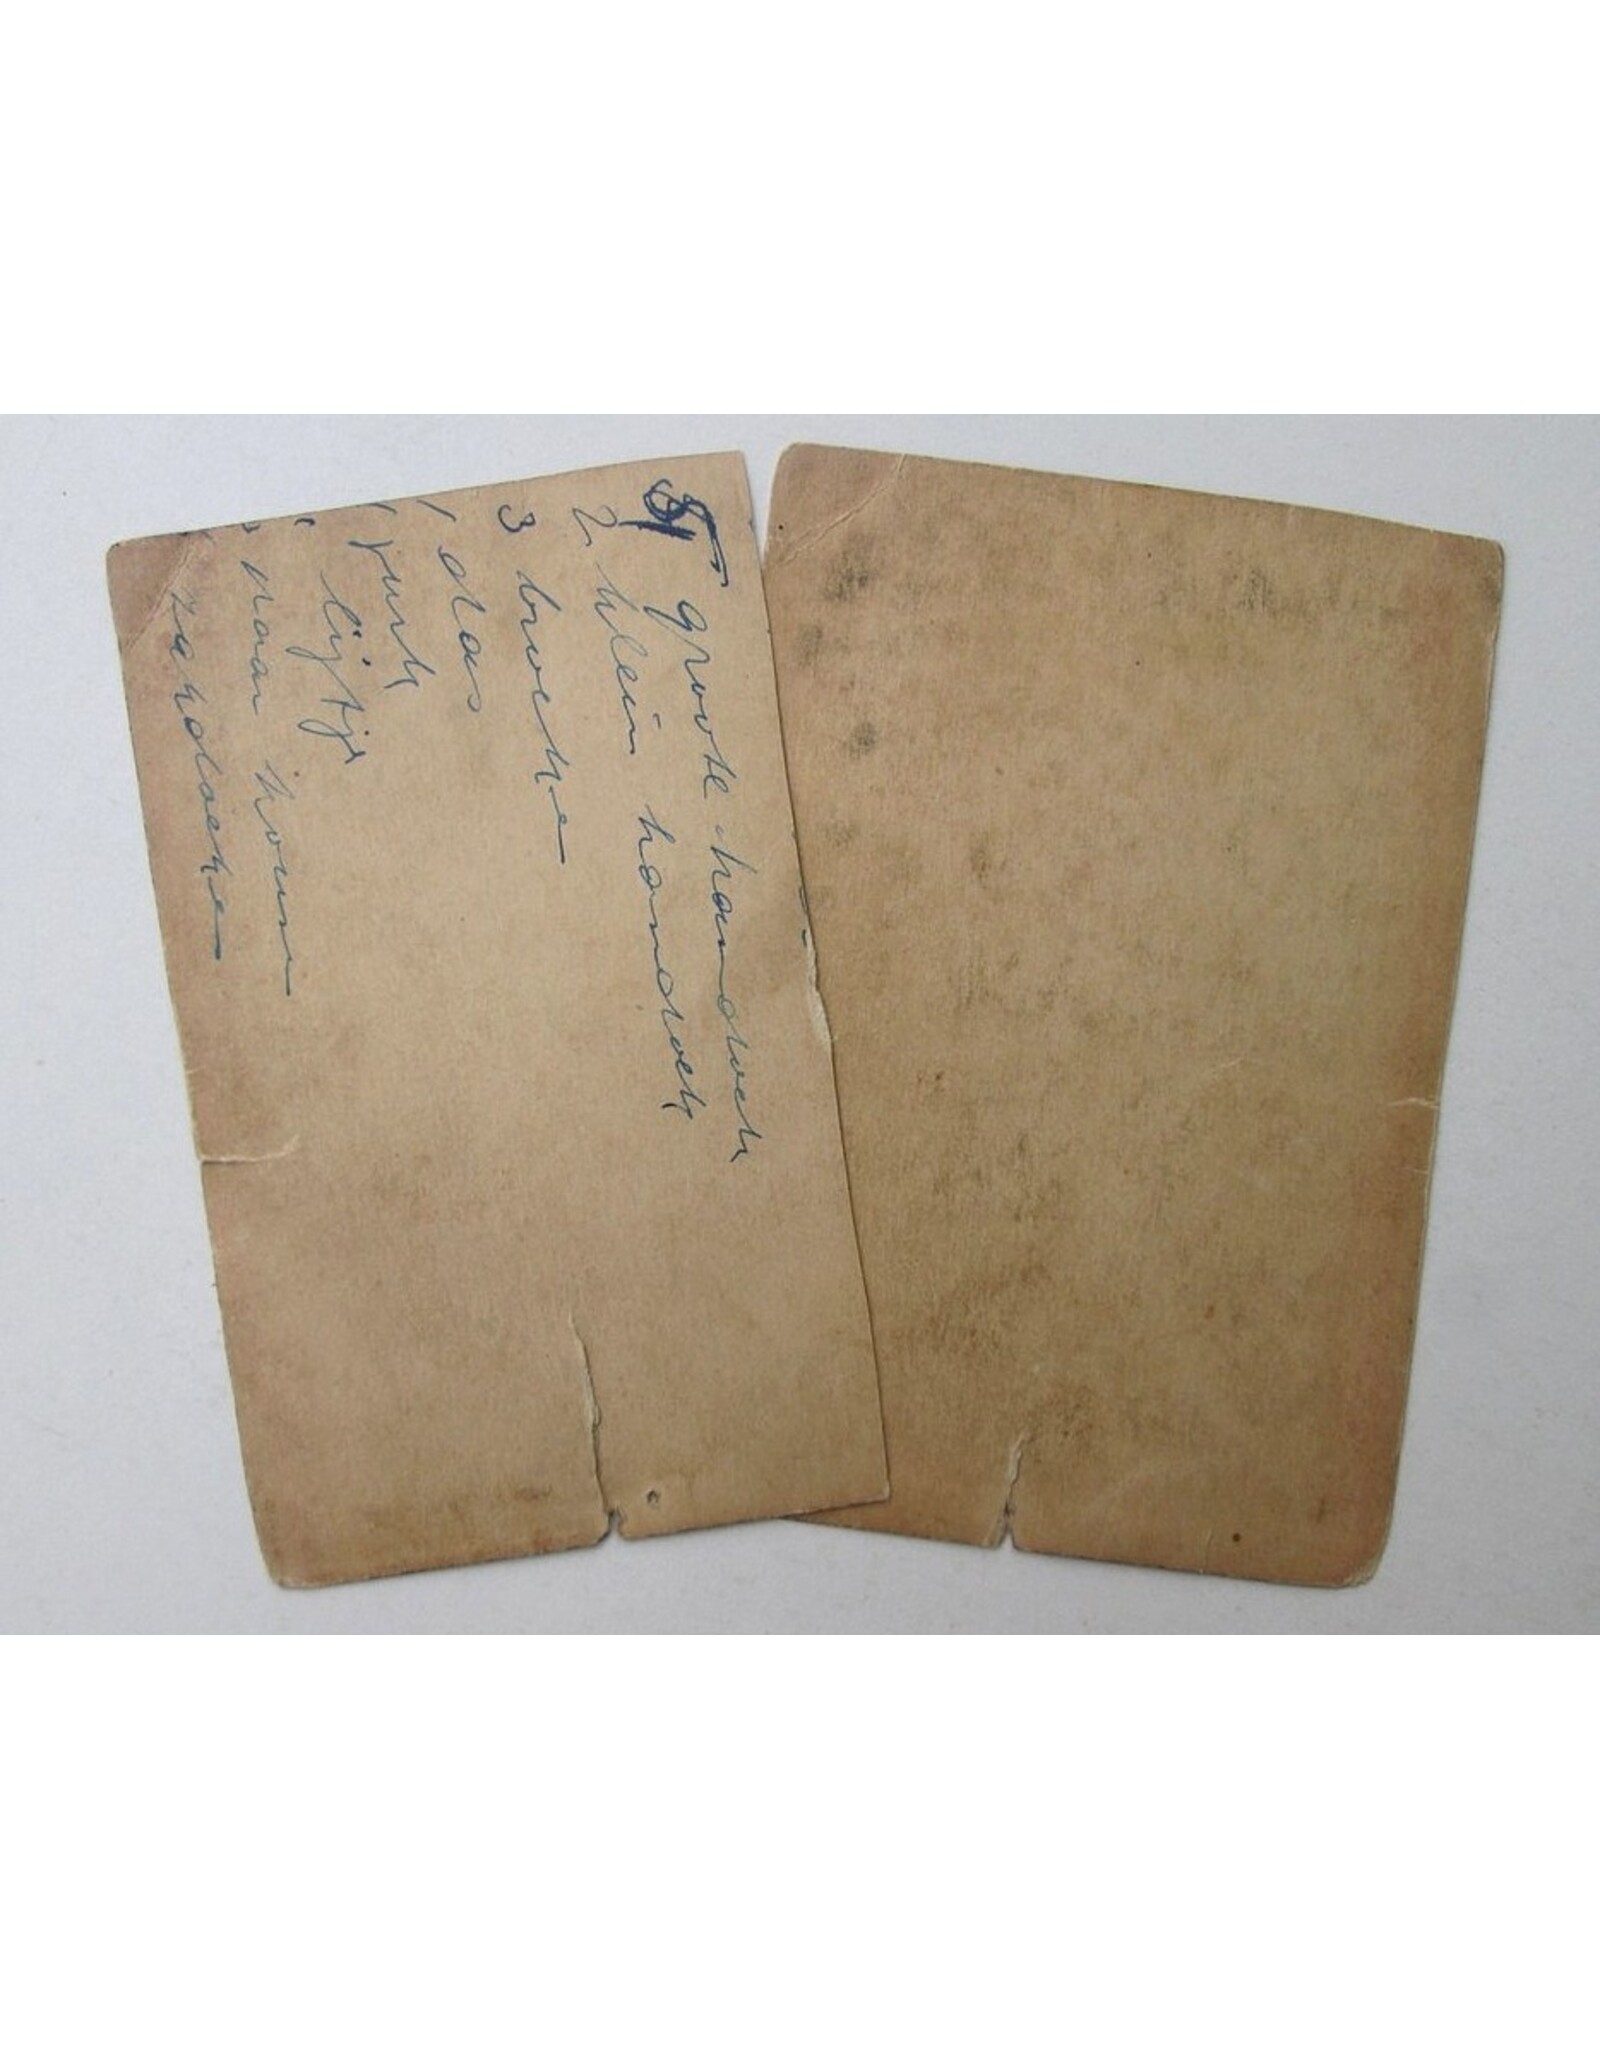 5 groote handoek
2 klein handoek
3 broeke
1 das
1 jurk
1 lijfje
3 paar kouse
zakdoeken